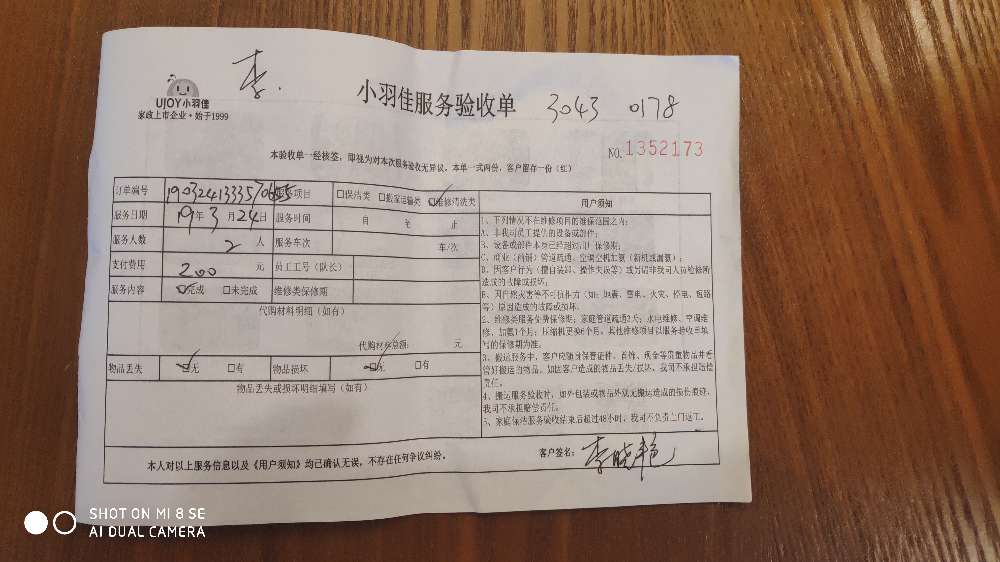 李.
UJOY小羽佳
家政上市企业·始于1999
小羽佳服务验收单 3043 0178
NO.1352173
本验收单一经核签,即视为对本次服务验收无异议。本单一式两份,客户留存一份(红)
订单编号 服务项目 □保洁类 □搬家运输类 □维修清洗类
服务日期 19年 3月 24日 服务时间 自 至 止
服务人数 2 人 服务车次 车/次
支付费用 200 元 员工工号(队长)
服务内容 □完成 □未完成 维修类保修期
代购材料明细(如有)
代购材料总额: 元
物品丢失 □无 □有 物品损坏 □无 □有
物品丢失或损坏明细填写(如有)
用户须知
1、下列情况不在维修项目的维保范围之内:
A、非我司员工提供的设备或部件;
B、设备或部件本身已经超过厂厂保修期;
C、商业(商铺)管道疏通、空调空机加氟(新机或漏氟);
D、因客户行为(擅自装卸、操作失误等)或另请非我司人员检修所
造成的故障或损坏;
E、因自然灾害等不可抗拒力(如:地震、雷电、火灾、停电、短路
等)原因造成的故障或损坏。
2、维修类服务免费保修期:家庭管道疏通2天;水电维修、空调维
修、加氟1个月;压缩机更换6个月。其他维修项目以服务验收单填
写的保修期为准。
3、搬运服务中,客户应随身保管证件、首饰、现金等贵重物品并看
管好搬运的物品。如因客户造成的物品丢失/损坏,我司不承担赔偿
责任。
4、搬运服务验收时,如外包装或物品外观无搬运造成的损伤痕迹,
我司不承担赔偿责任。
5、家庭保洁服务验收结束后超过48小时,我司不负责上门返工。
本人对以上服务信息以及《用户须知》均已确认无误,不存在任何争议纠纷。
客户签名: 李晓艳
SHOT ON MI 8 SE
AI DUAL CAMERA